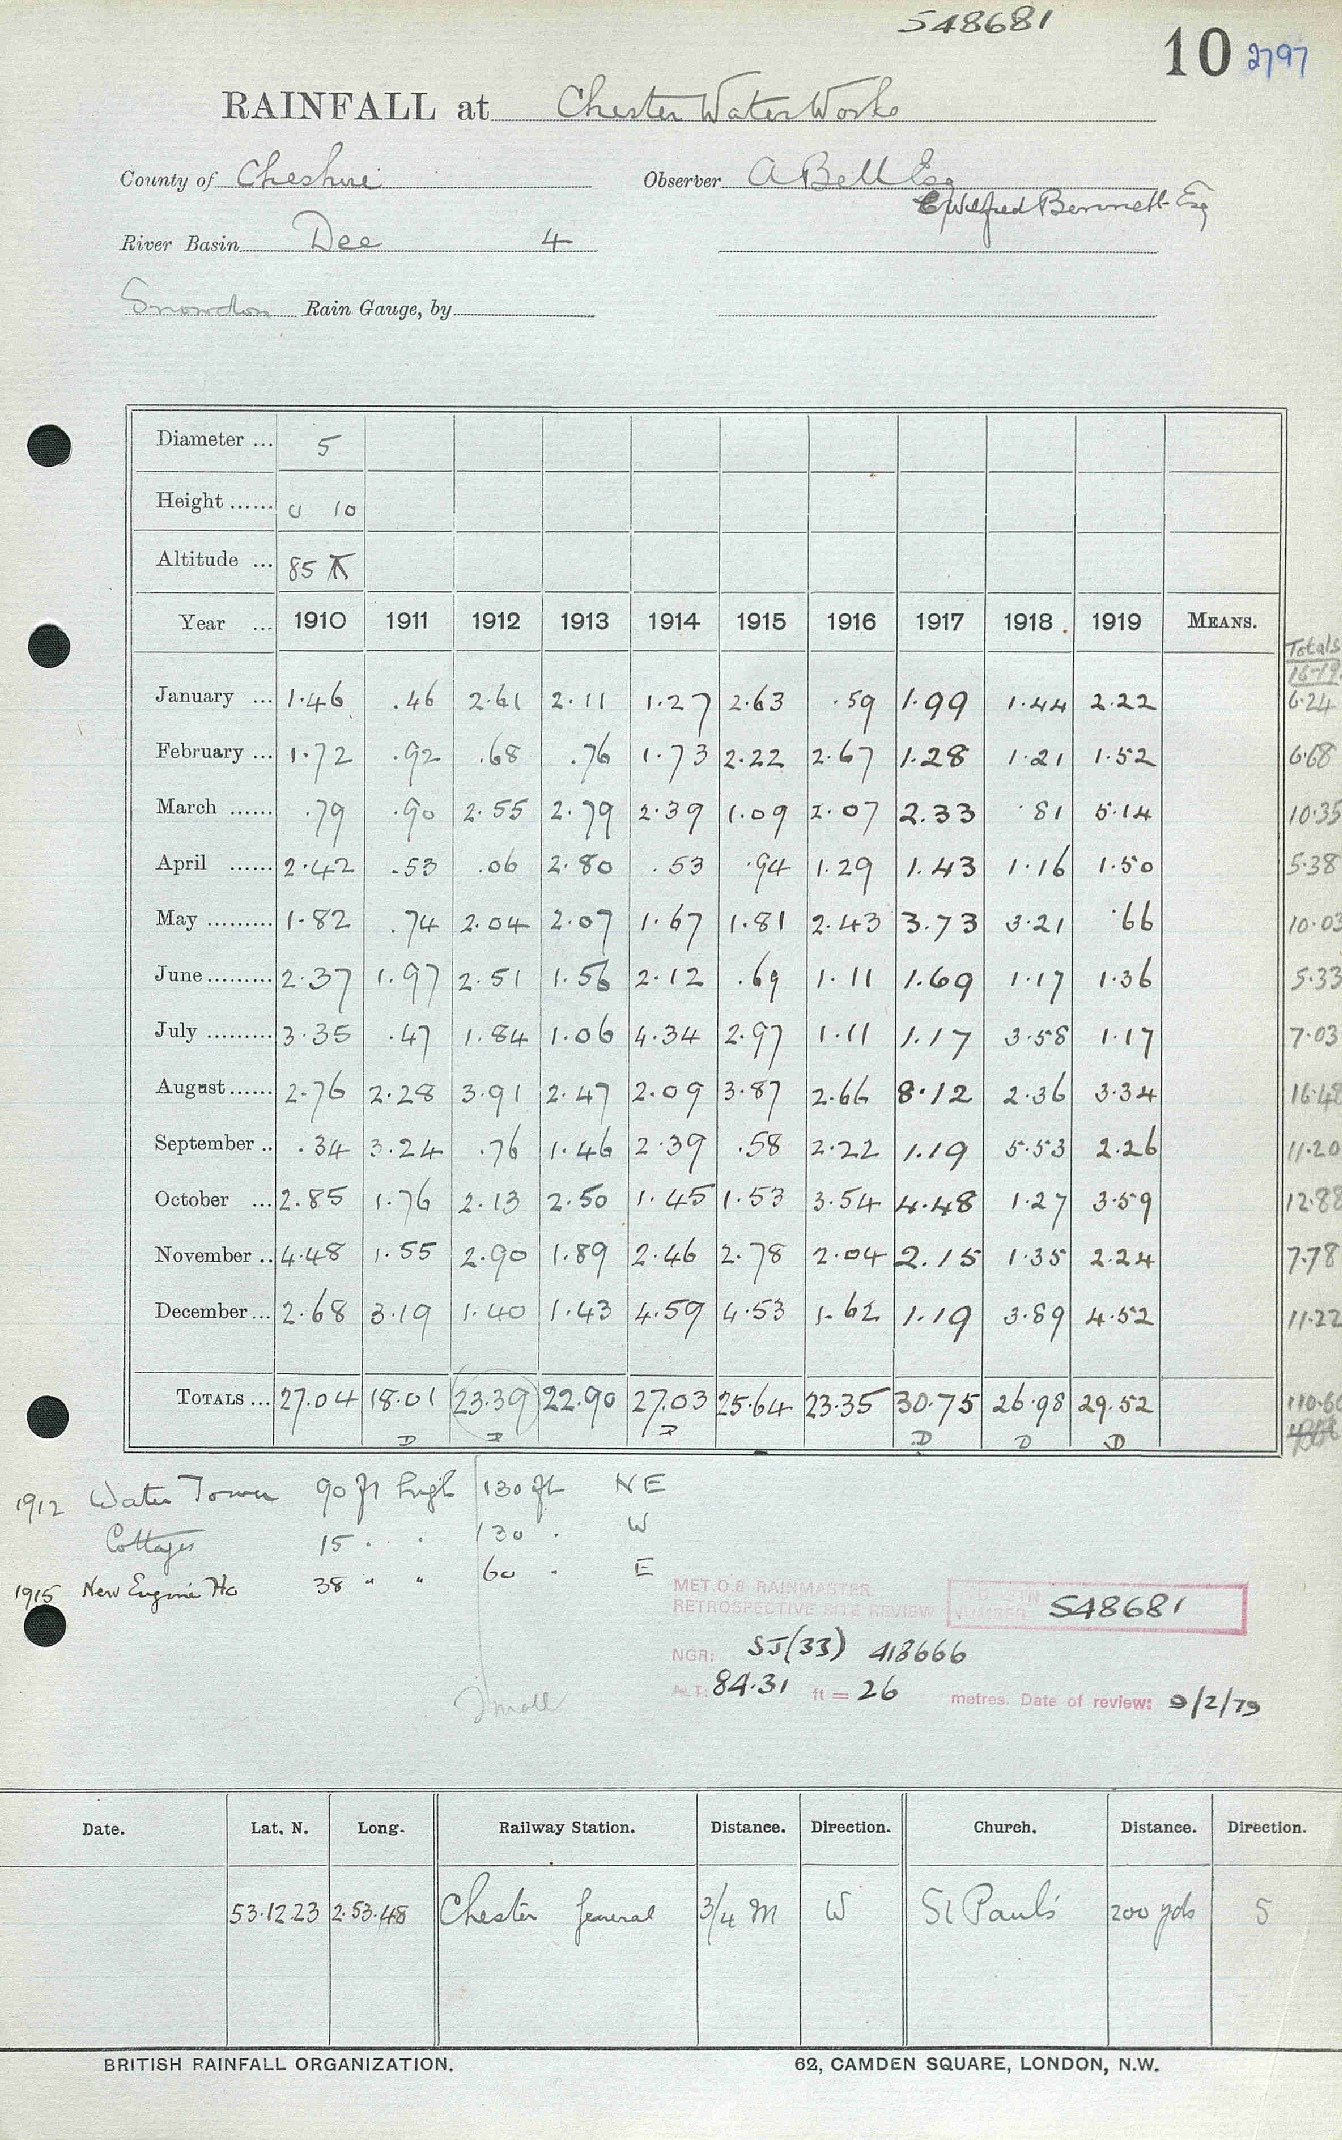 548681
10 2797
RAINFALL at Chester Water Works
County of Cheshire Observer A Bell Esq
Wilfred Bennett Esq
River Basin Dee 4
Snowdon Rain Gauge, by
Diameter ... 5
Height ...... 0 10
Altitude ... 85
Year ... 1910 1911 1912 1913 1914 1915 1916 1917 1918 1919 MEANS.
Totals
16-19
January ... 1.46 .46 2.61 2.11 1.27 2.63 .59 1.99 1.44 2.22 6.24
February ... 1.72 .92 .68 .76 1.73 2.22 2.67 1.28 1.21 1.52 6.68
March ...... .79 .90 2.55 2.79 2.39 1.09 2.07 2.33 .81 5.14 10.35
April ...... 2.42 .53 .06 2.80 .53 .94 1.29 1.43 1.16 1.50 5.38
May ......... 1.82 .74 2.04 2.07 1.67 1.81 2.43 3.73 3.21 .66 10.03
June ......... 2.37 1.97 2.51 1.56 2.12 .69 1.11 1.69 1.17 1.36 5.33
July ......... 3.35 .47 1.84 1.06 4.34 2.97 1.11 1.17 3.58 1.17 7.03
August ...... 2.76 2.28 3.91 2.47 2.09 3.87 2.66 8.12 2.36 3.34 16.48
September .. .34 3.24 .76 1.46 2.39 .58 2.22 1.19 5.53 2.26 11.20
October ... 2.85 1.76 2.13 2.50 1.45 1.53 3.54 4.48 1.27 3.59 12.88
November .. 4.48 1.55 2.90 1.89 2.46 2.78 2.04 2.15 1.35 2.24 7.78
December ... 2.68 3.19 1.40 1.43 4.59 4.53 1.62 1.19 3.89 4.52 11.22
TOTALS ... 27.04 18.01 23.39 22.90 27.03 25.64 23.35 30.75 26.98 29.52 110.60
D D D D D D
1912 Water Tower 90 ft high 130 ft NE
Cottages 15 . . 130 . W
1915 New Engine Ho 38 " " 60 . E
MET.O.8 RAINMASTER
RETROSPECTIVE SITE REVIEW NUMBER 548681
NGR: SJ(33) 418666
ALT: 84.31 ft = 26 metres. Date of review: 9/2/79
Small
Date. Lat. N. Long. Railway Station. Distance. Direction. Church. Distance. Direction.
53.12.23 2.53.48 Chester General 3/4 M W St Paul's 200 yds S
BRITISH RAINFALL ORGANIZATION. 62, CAMDEN SQUARE, LONDON, N.W.